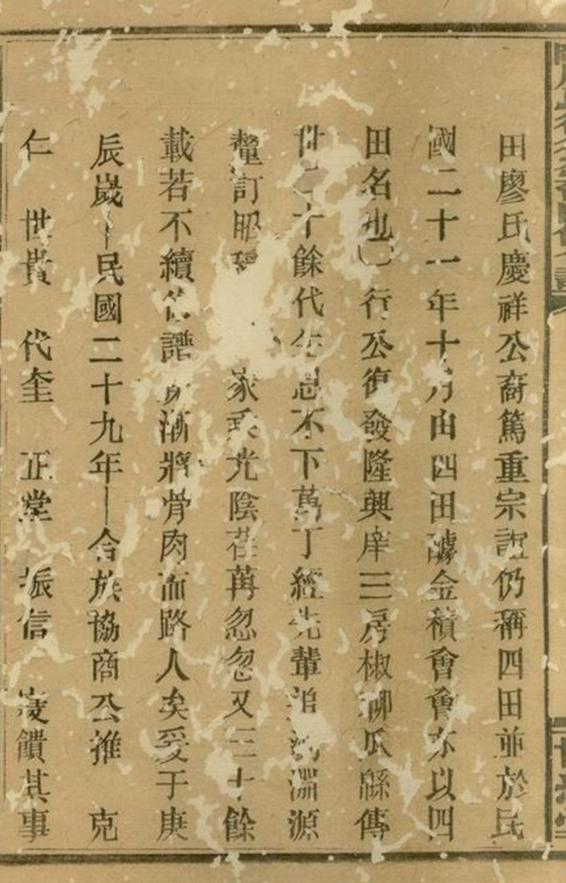 田廖氏慶祥公裔篤重宗誼仍稱四田並於民
國二十一年十月由四田醵金積會會亦以四
田名也 行公復發隆興庠三房椒聊瓜緜傳
世 十餘代生息不下萬丁經先輩 淵源
釐訂昭 家乘光陰荏苒忽忽又三十餘
載若不續修譜 漸將骨肉而路人矣爰于庚
辰歲—民國二十九年—合族協商公推 克
仁 世貴 代奎 正堂 振信 饋其事